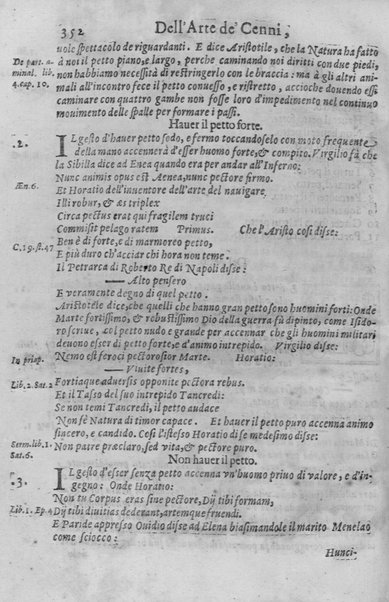 352 Dell'Arte de' Cenni,
uole spettacolo de riguardanti. E dice Aristotile, che la Natura ha fatto
De part. a-
minal. lib.
4. cap. 10.
a noi il petto piano, e largo, perche caminando noi diritti con due piedi,
non habbiamo necessità di restringerlo con le braccia: ma à gli altri ani-
mali all'incontro fece il petto conuesso, e ristretto, accioche douendo essi
caminare con quattro gambe non fosse loro d'impedimento nel continuo
mouimento delle spalle per formare i passi.
Hauer il petto forte.
.2.
IL gesto d'hauer petto sodo, e fermo toccandoselo con moto frequente
della mano accennerà d'esser huomo forte, & compito. Virgilio fà che
la Sibilla dice ad Enea quando era per andar all'Inferno:
Æn. 6.
Nunc animis opus est Aenea, nunc pectore firmo.
Et Horatio dell'inuentore dell'arte del nauigare
Illi robur, & æs triplex
Circa pectus erat qui fragilem truci
Commisit pelago ratem Primus. Che l'Aristo così disse:
C. 19. st. 47
Ben è di forte, e di marmoreo petto,
E più duro ch'acciar chi hora non teme.
Il Petrarca di Roberto Re di Napoli disse:
— Alto pensero
E veramente degno di quel petto.
Aristotele dice, che quelli che hanno gran petto sono huomini forti: Onde
Marte fortissimo, & robustissimo Dio della guerra fù dipinto, come Isido-
ro scriue, col petto nudo e grande per accennar che gli huomini militari
deuono esser di petto forte, e d'animo intrepido. Virgilio disse:
In priap.
Nemo est feroci pectorosior Marte. Horatio:
— Viuite fortes,
Lib. 2. Sat. 2
Fortiaque aduersis opponite pectora rebus.
Et il Tasso del suo intrepido Tancredi:
Se non temi Tancredi, il petto audace
Non fè Natura di timor capace. Et hauer il petto puro accenna animo
sincero, e candido. Così l'istesso Horatio di se medesimo disse:
Serm. lib. 1.
Sat. 6.
Non patre præclaro, sed vita, & pectore puro.
Non hauer il petto.
.3.
IL gesto d'esser senza petto accenna vn'huomo priuo di valore, e d'in-
gegno: Onde Horatio:
Non tu Corpus eras sine pectore, Dij tibi formam,
Lib. 1. Ep. 4
Dij tibi diuitias dederant, artemque fruendi.
E Paride appresso Ouidio disse ad Elena biasimandole il marito Menelao
come sciocco:
Hunci-